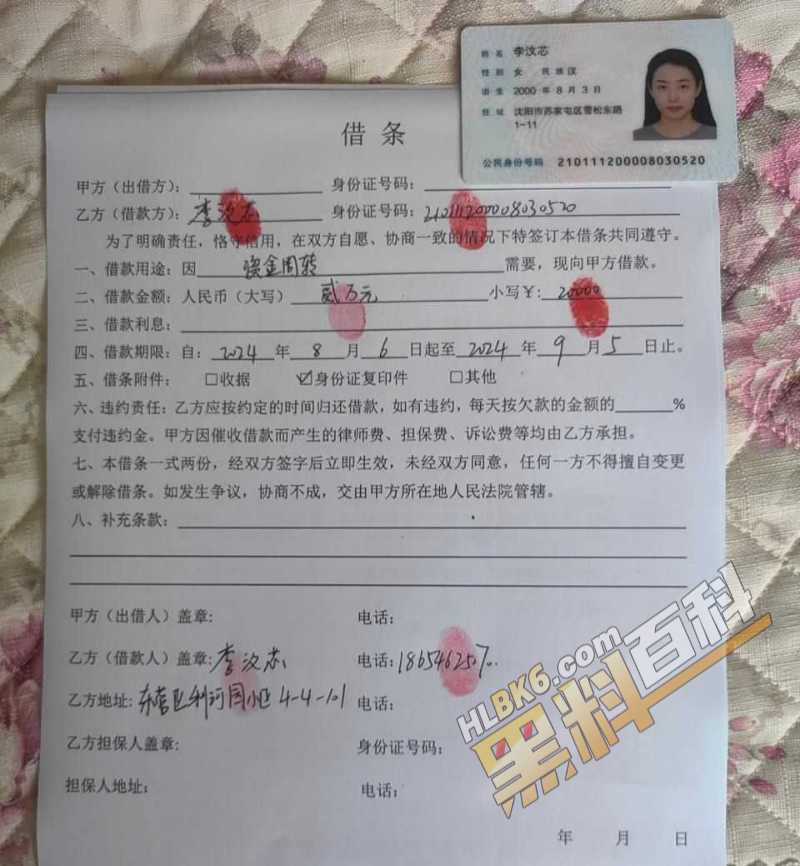 姓名
性别 女 民族 汉
出生
住址
公民身份号码
借 条
甲方（出借方）： 身份证号码：
乙方（借款方）： 身份证号码：
为了明确责任，恪守信用，在双方自愿、协商一致的情况下特签订本借条共同遵守。
一、借款用途：因 资金周转 需要，现向甲方借款。
二、借款金额：人民币（大写） 贰万元 小写￥: 20000
三、借款利息：
四、借款期限：自：2024 年 8 月 6 日起至 2024 年 9 月 5 日止。
五、借条附件： □收据 ☑身份证复印件 □其他
六、违约责任：乙方应按约定的时间归还借款，如有违约，每天按欠款的金额的 %
支付违约金。甲方因催收借款而产生的律师费、担保费、诉讼费等均由乙方承担。
七、本借条一式两份，经双方签字后立即生效，未经双方同意，任何一方不得擅自变更
或解除借条。如发生争议，协商不成，交由甲方所在地人民法院管辖。
八、补充条款：
甲方（出借人）盖章： 电话：
乙方（借款人）盖章： 电话：
乙方地址： 电话：
乙方担保人盖章： 身份证号码：
担保人地址： 电话：
年 月 日
HLBK6.com
黑料百科